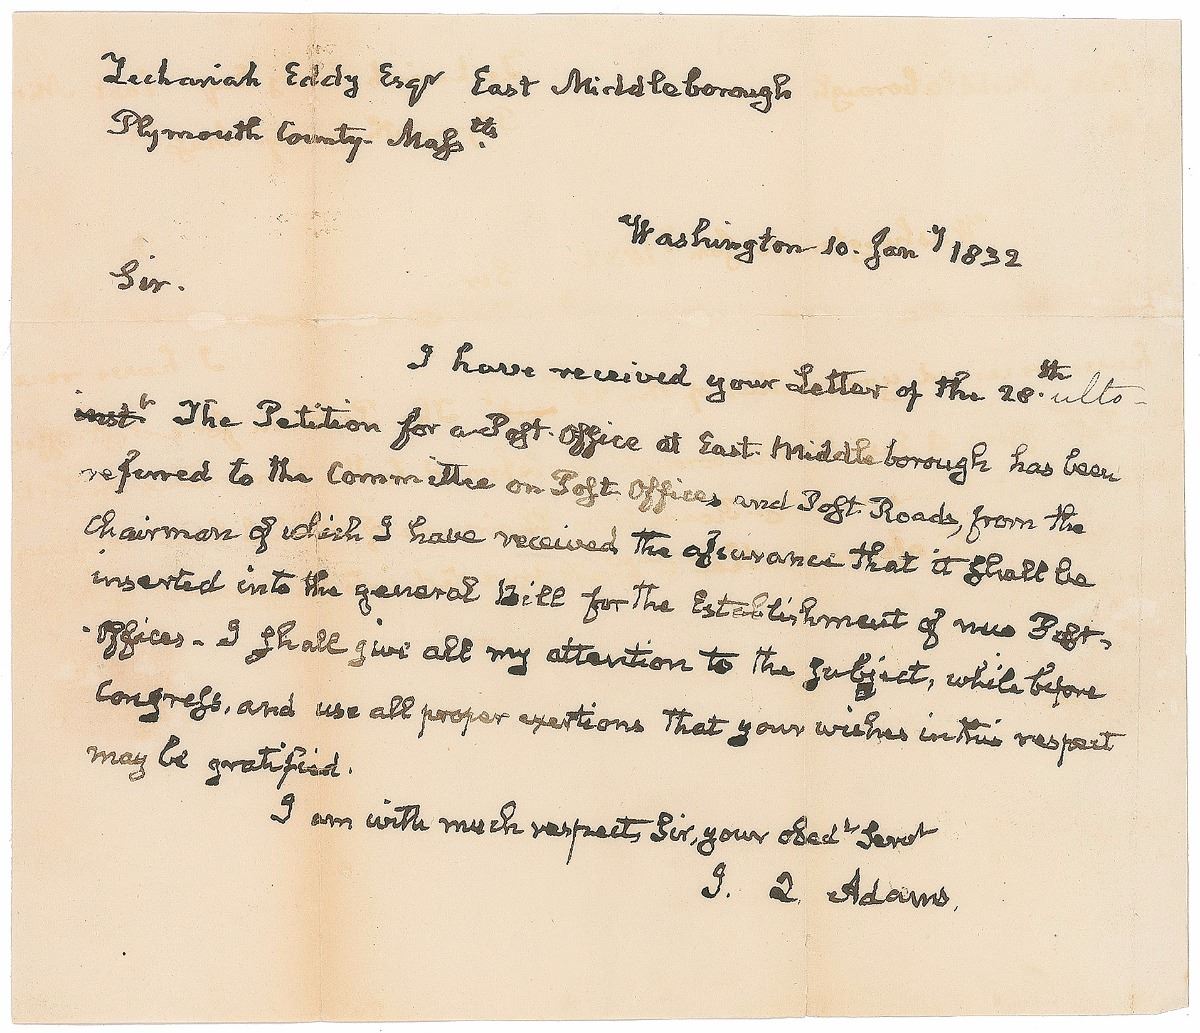 Zechariah Eddy Esqr East Middleborough
Plymouth County. Masstts.
Washington 10. Jany 1832
Sir.
I have received your Letter of the 28.th ulto-
inst.t The Petition for a Post-Office at East-Middleborough has been
referred to the Committee on Post Offices and Post Roads, from the
Chairman of which I have received the assurance that it shall be
inserted into the general Bill for the Establishment of new Post-
-Offices - I shall give all my attention to the subject, while before
Congress, and use all proper exertions that your wishes in this respect
may be gratified.
I am with much respect, Sir, your obedt Servt
J. Q. Adams.